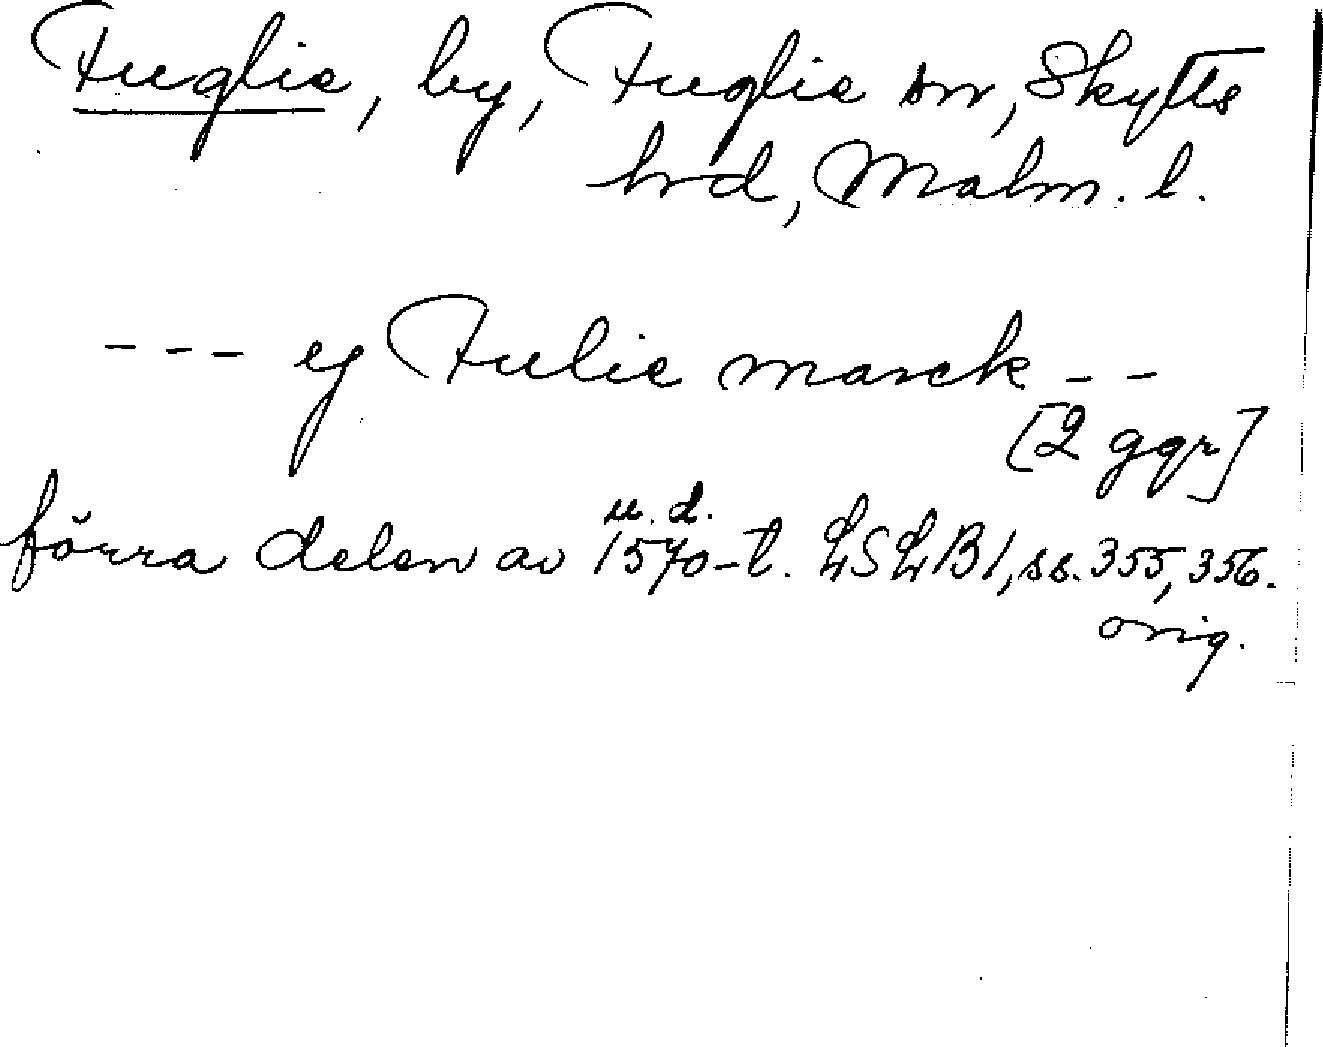 Fuglie, by, Fuglie sn, Skytts
hrd, Malm. l.
--- ej Fulie marck --
[2 ggr]
u. d.
förra delen av 1570-t. LSLB1, ss. 355, 356.
orig.